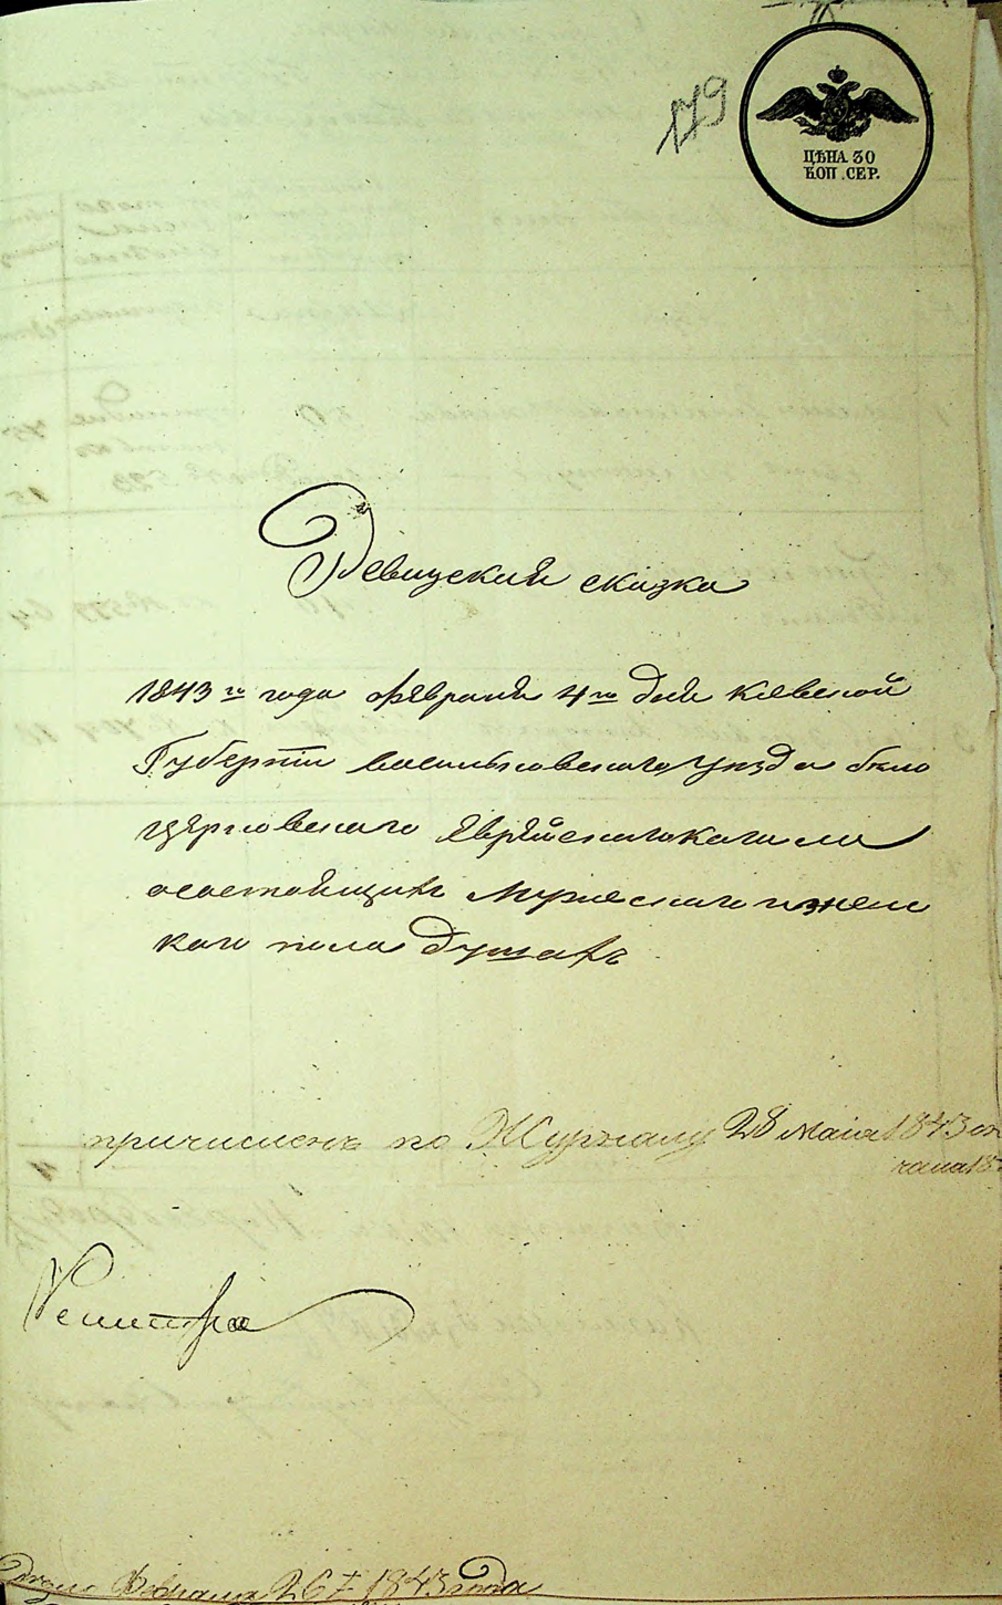 179
ЦѢНА 30
КОП. СЕР.
Ревизская сказка
1843 го года февраля 4 го дня Киевской
Губернїи Васильковского уезда бело
церковского Еврейского Кагала
осостоящихъ Мужеского иженс
кого пола душахъ
причисленъ по Журналу 28 Маія 1843 го
февраля 26 1843 года